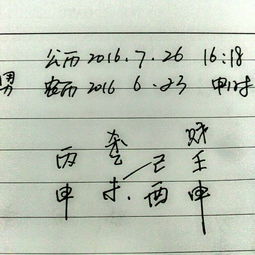 公历 2016.7.26 16:18
男 农历 2016 6.23 申时
杀 财
丙 乙 己 壬
申 未. 酉 申